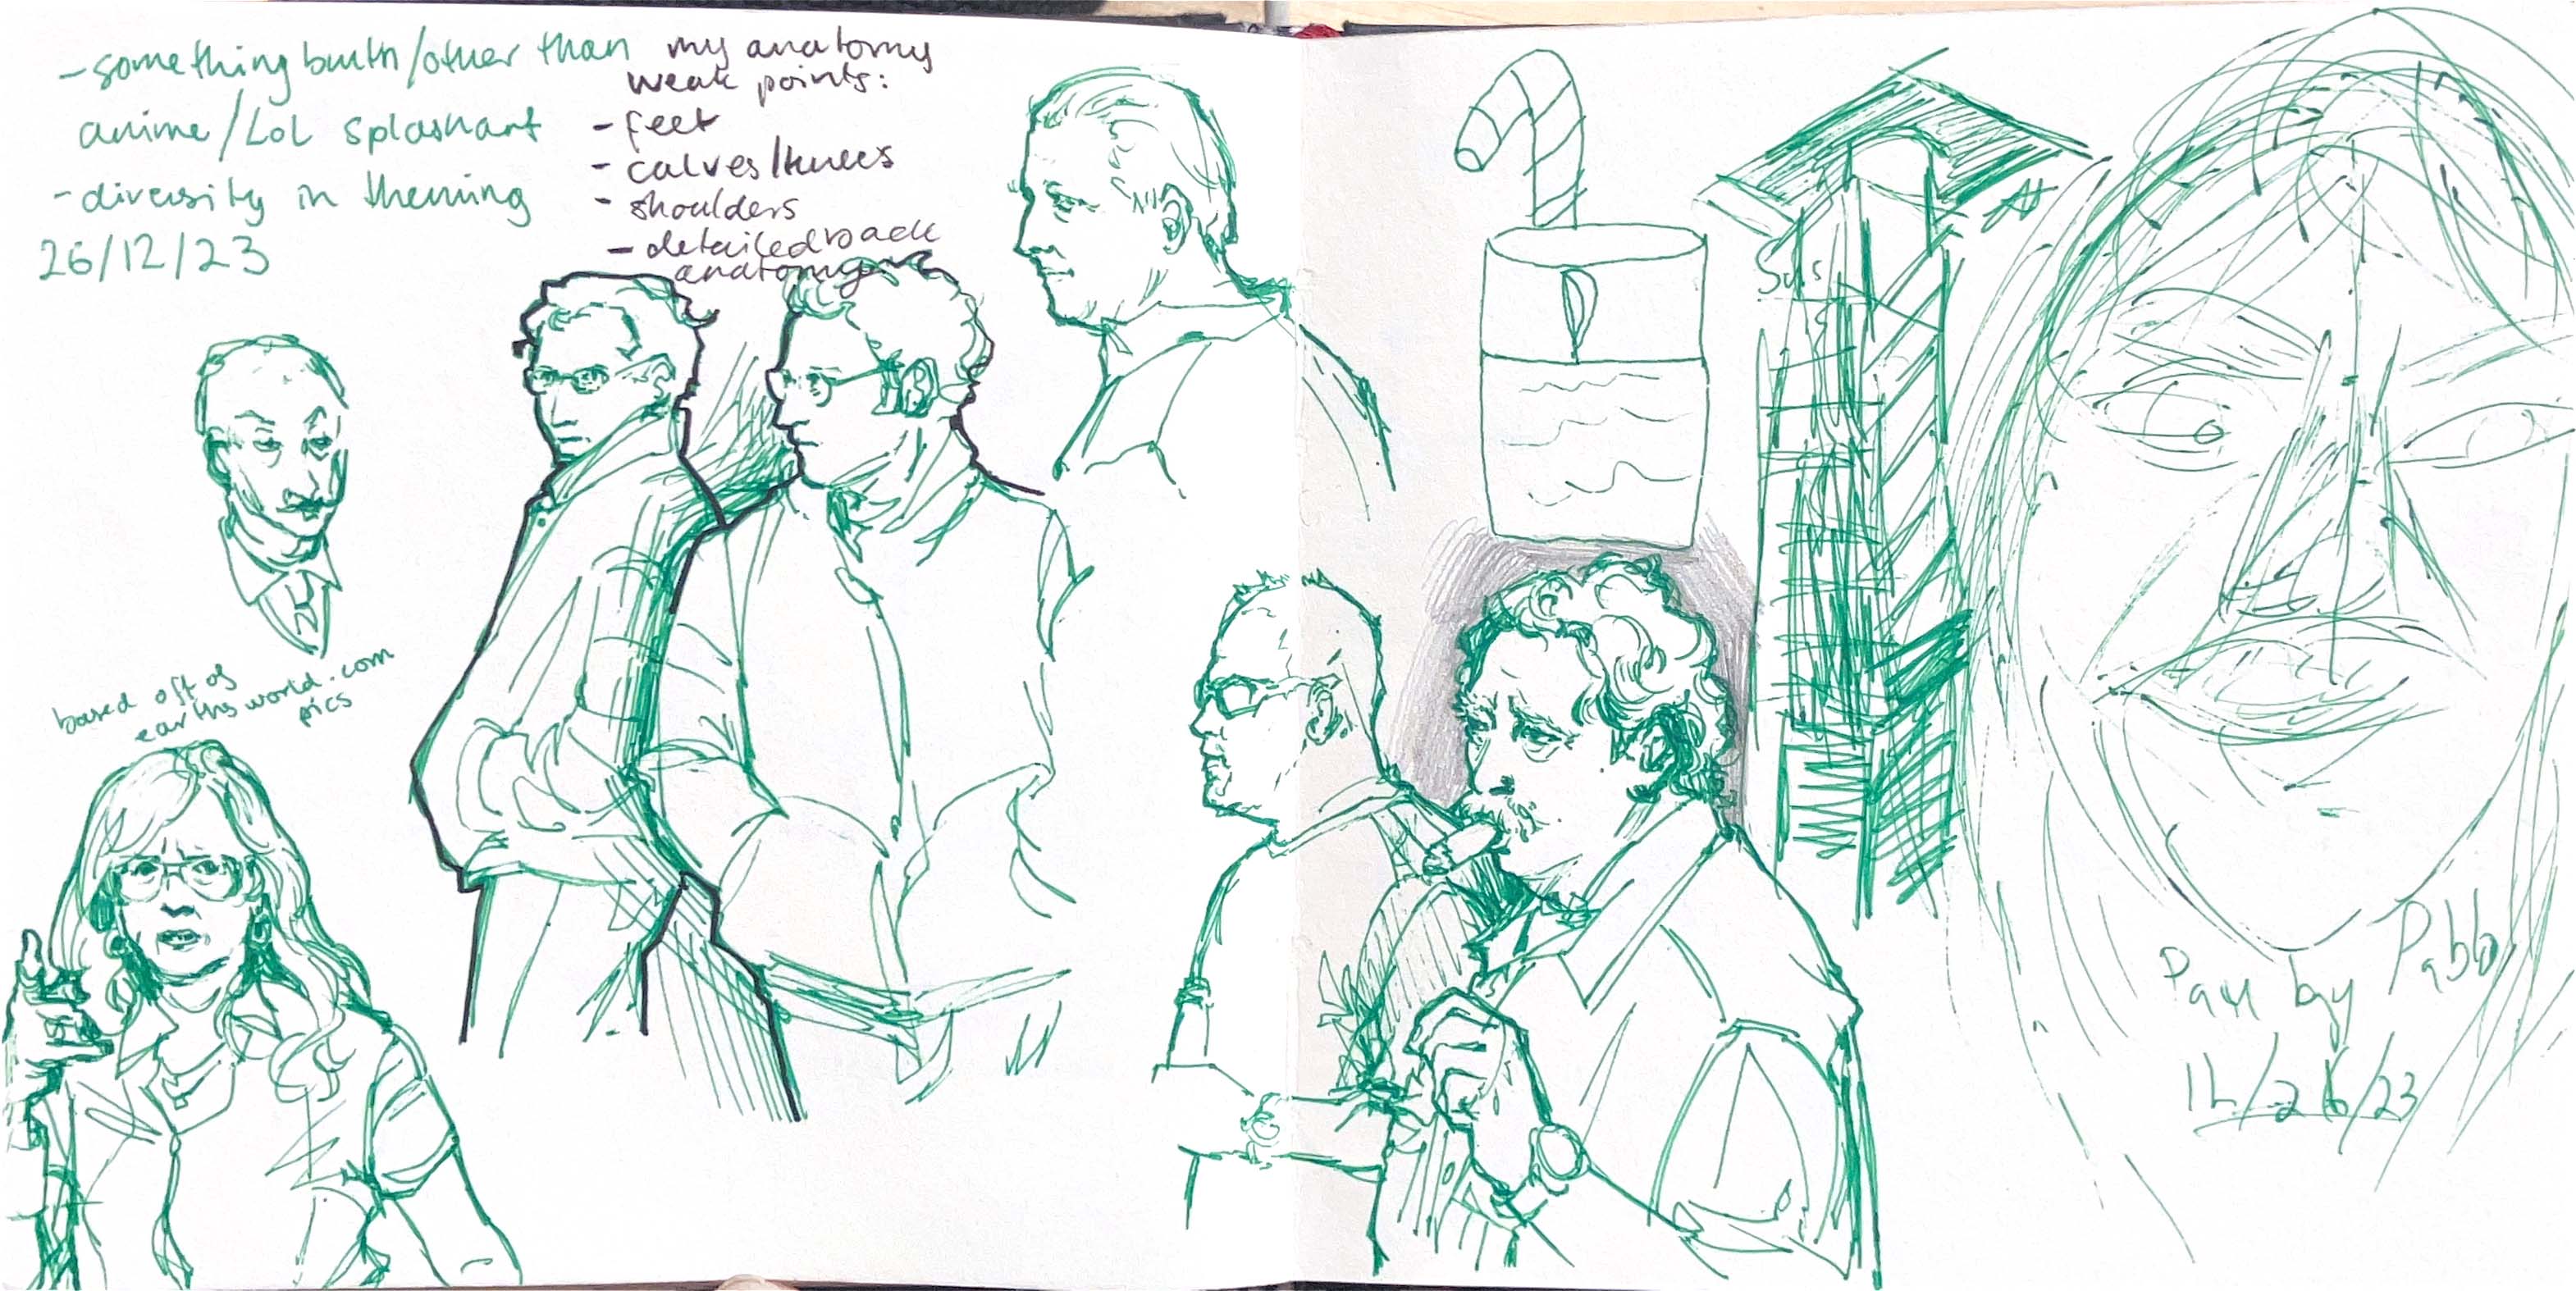 - something /other than
anime/LoL splashart
- diversity in theming
26/12/23
my anatomy
weak points:
- feet
- calves/knees
- shoulders
- detailed back
anatomy
based off of
earthsworld.com
pics
by Pabb
12/26/23